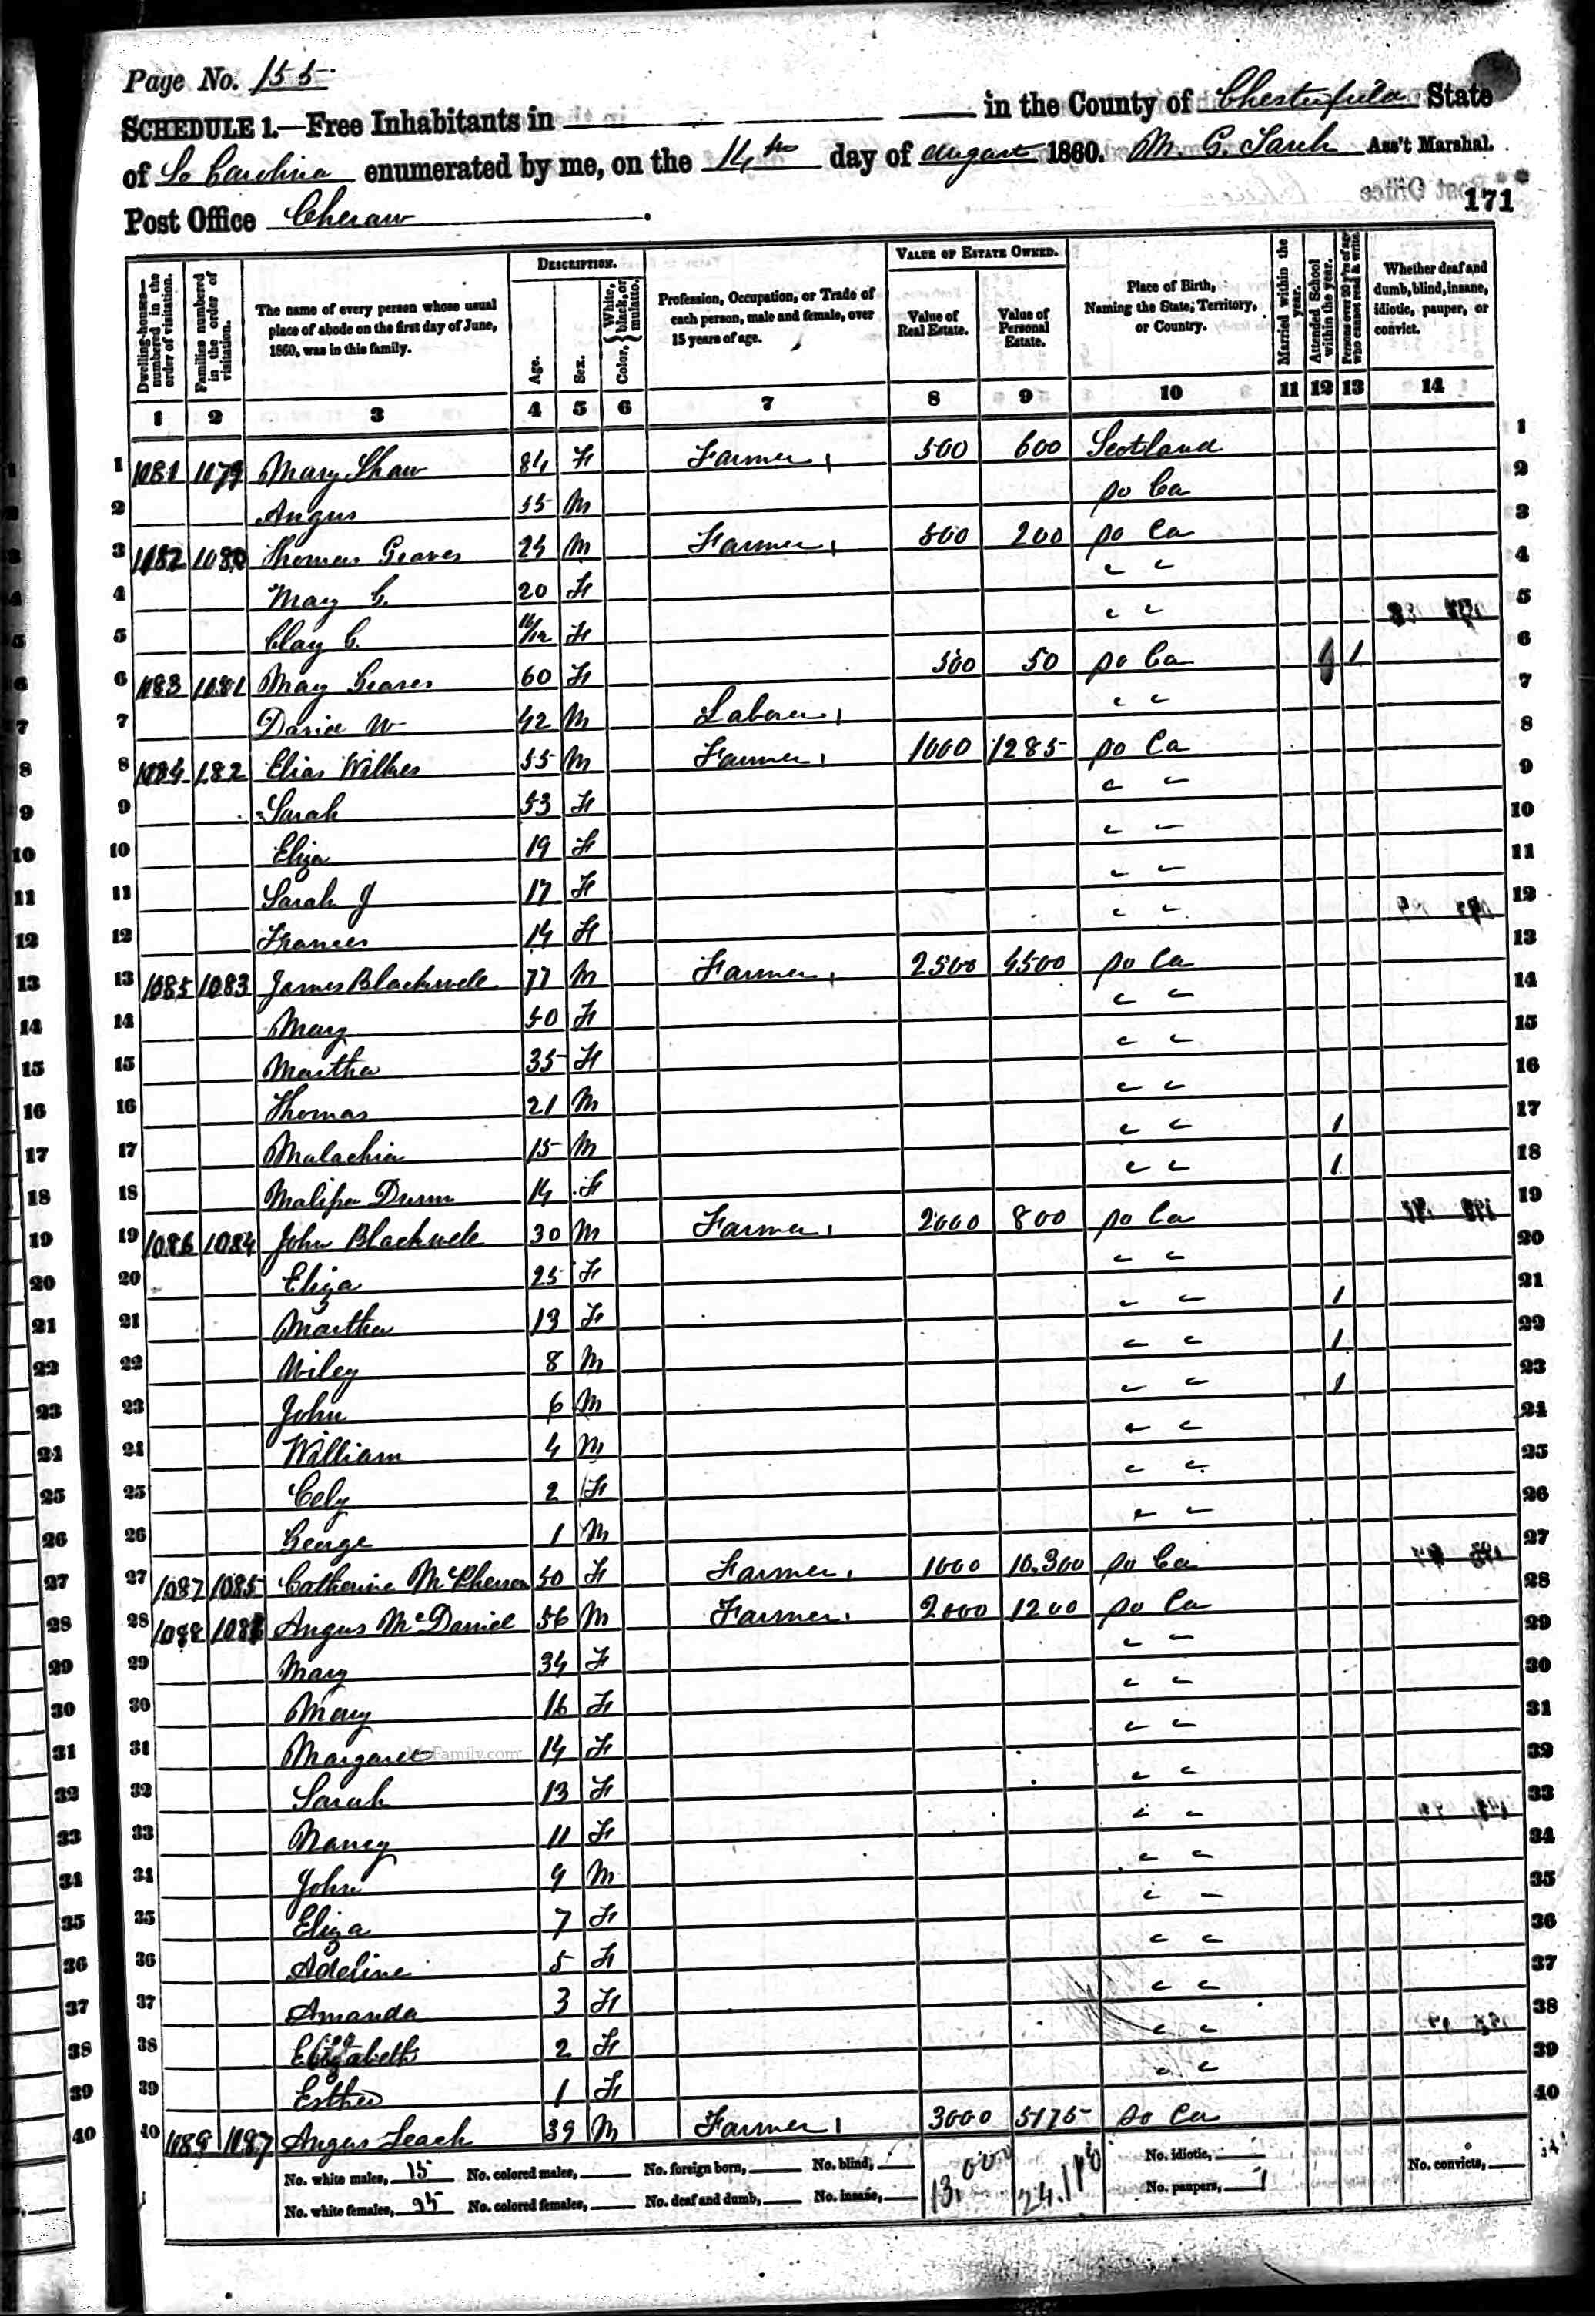 Page No. 155
SCHEDULE 1.—Free Inhabitants in in the County of Chesterfield State
of So Carolina enumerated by me, on the 14th day of August 1860. Ass't Marshal.
Post Office Cheraw
171
Dwelling-houses—numbered in the order of visitation.
Families numbered in the order of visitation.
The name of every person whose usual place of abode on the first day of June, 1860, was in this family.
DESCRIPTION.
Age.
Sex.
Color, {White, black, or mulatto.
Profession, Occupation, or Trade of each person, male and female, over 15 years of age.
VALUE OF ESTATE OWNED.
Value of Real Estate.
Value of Personal Estate.
Place of Birth, Naming the State, Territory, or Country.
Married within the year.
Attended School within the year.
Persons over 20 y'rs of age who cannot read & write.
Whether deaf and dumb, blind, insane, idiotic, pauper, or convict.
1 2 3 4 5 6 7 8 9 10 11 12 13 14
1 1081 1079 Mary Shaw 84 F Farmer 500 600 Scotland 1
2 Angus 55 M So Ca 2
3 1082 1080 Thomas Graves 24 M Farmer 500 200 So Ca 3
4 Mary C. 20 F " " 4
5 Clay C. F " " 5
6 1083 1081 Mary Graves 60 F 500 50 So Ca 1 6
7 David W 42 M Laborer " " 7
8 1084 182 Elias Wilkes 55 M Farmer 1000 1285 So Ca 8
9 Sarah 53 F " " 9
10 Eliza 19 F " " 10
11 Sarah J 17 F " " 11
12 Frances 14 F " " 12
13 1085 1083 James Blackwell 77 M Farmer 2500 4500 So Ca 13
14 Mary 50 F " " 14
15 Martha 35 F " " 15
16 Thomas 21 M " " 16
17 Malachia 15 M " " 1 17
18 Malissa 14 F " " 1 18
19 1086 1084 John Blackwell 30 M Farmer 2000 800 So Ca 19
20 Eliza 25 F " " 20
21 Martha 13 F " " 1 21
22 Wiley 8 M " " 1 22
23 John 6 M " " 1 23
24 William 4 M " " 24
25 Cely 2 F " " 25
26 George 1 M " " 26
27 1087 1085 Catherine McPherson 50 F Farmer 1000 10,300 So Ca 27
28 1088 1086 Angus McDaniel 56 M Farmer 2000 1200 So Ca 28
29 Mary 34 F " " 29
30 Mary 16 F " " 30
31 Margaret 14 F " " 31
32 Sarah 13 F " " 32
33 Nancy 11 F " " 33
34 John 9 M " " 34
35 Eliza 7 F " " 35
36 Adeline 5 F " " 36
37 Amanda 3 F " " 37
38 Elizabeth 2 F " " 38
39 Esther 1 F " " 39
40 1089 1087 Angus Leach 39 M Farmer 3000 5175 So Ca 40
No. white males, 15 No. colored males, No. foreign born, No. blind, 13,000 24,110 No. idiotic, No. convicts,
No. white females, 25 No. colored females, No. deaf and dumb, No. insane, No. paupers, 1